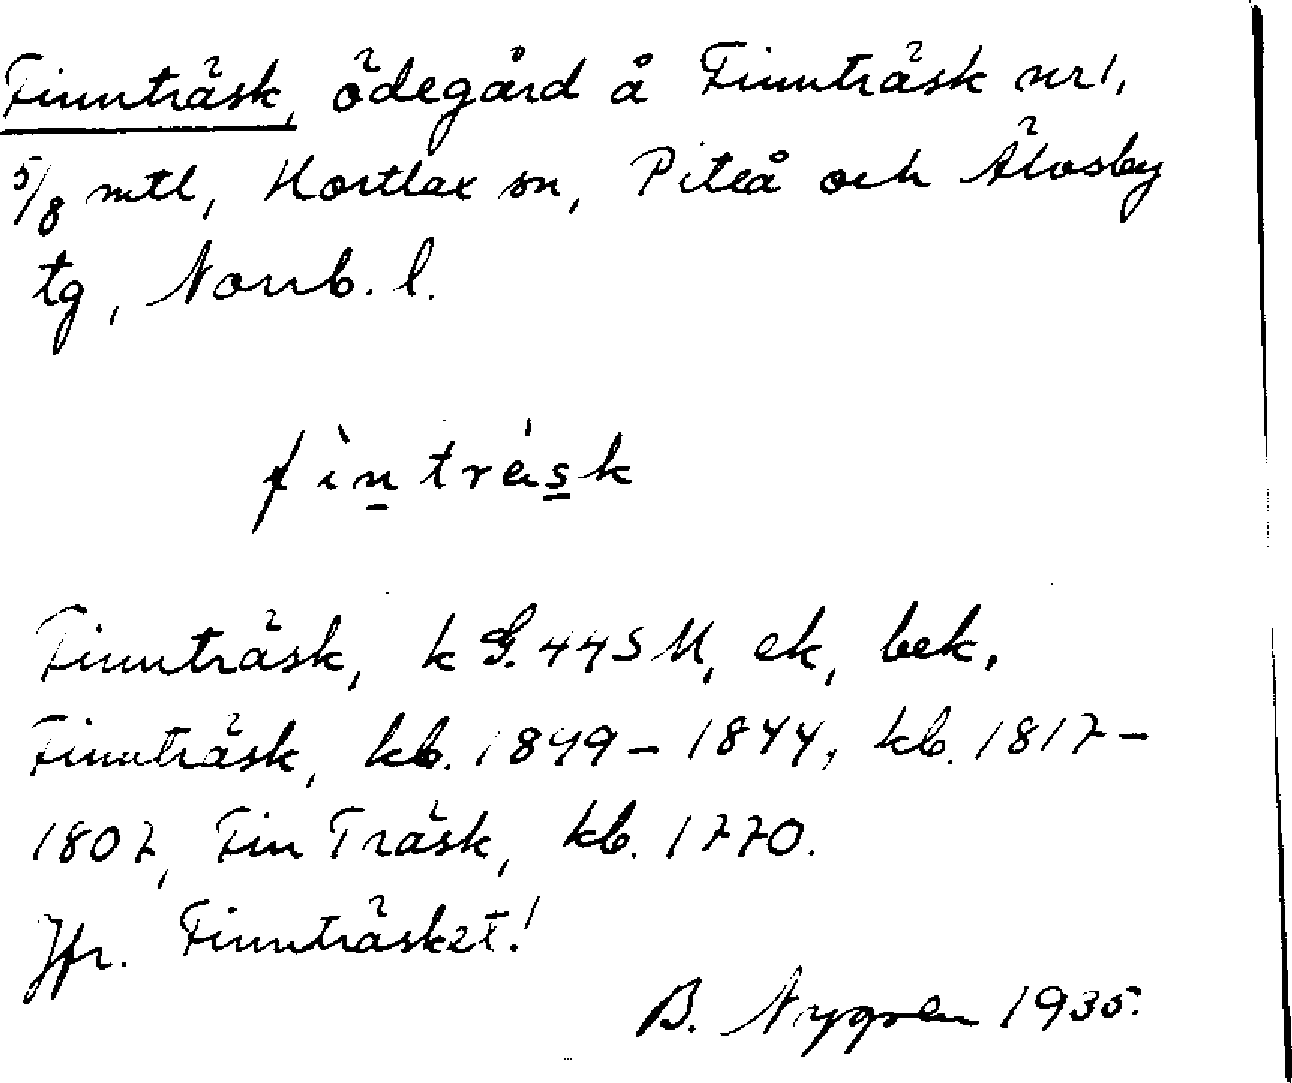 Finnträsk, ödegård å Finnträsk nr 1,
5/8 mtl, Hortlax sn, Piteå och Älvsby
tg, Norrb. l.
fìn̲trés̲k
Finnträsk, k G. 445 M, ek, bek.
Finnträsk, kb. 1849–1844, kb. 1817–
1807, Fin Träsk, kb. 1770.
Jfr. Finnträsket!
B. Nygren 1935.